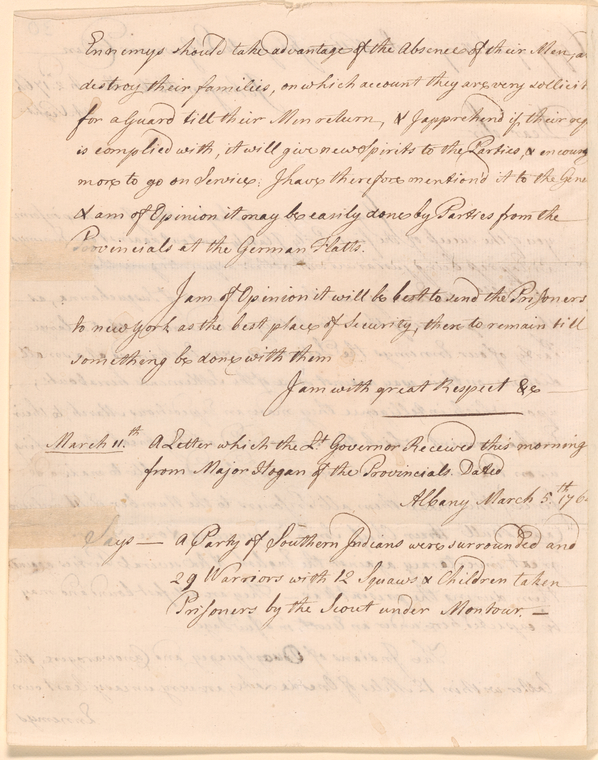 Ennimys should take advantage of the Absence of their Men,
destroy their families, on which account they are very sollicit
for a Guard till their Men return, & I apprehend if their req
is complied with, it will give new Spirits to the Parties, & encourag
more to go on Service; I have therefore mentiond it to the Gene
& am of Opinion it may be easily done by Parties from the
Provincials at the German Flatts.
I am of Opinion it will be best to send the Prisoners
to new York as the best place of Security, there to remain till
something be done with them
I am with great Respect &c
March 11.th A Letter which the Lt Governor Received this morning
from Major Hogan of the Provincials. Dated
Albany March 5.th 176
Says — a Party of Southern Indians were surrounded and
29 Warriors with 12 Squaws & Children taken
Prisoners by the Scout under Montour. —